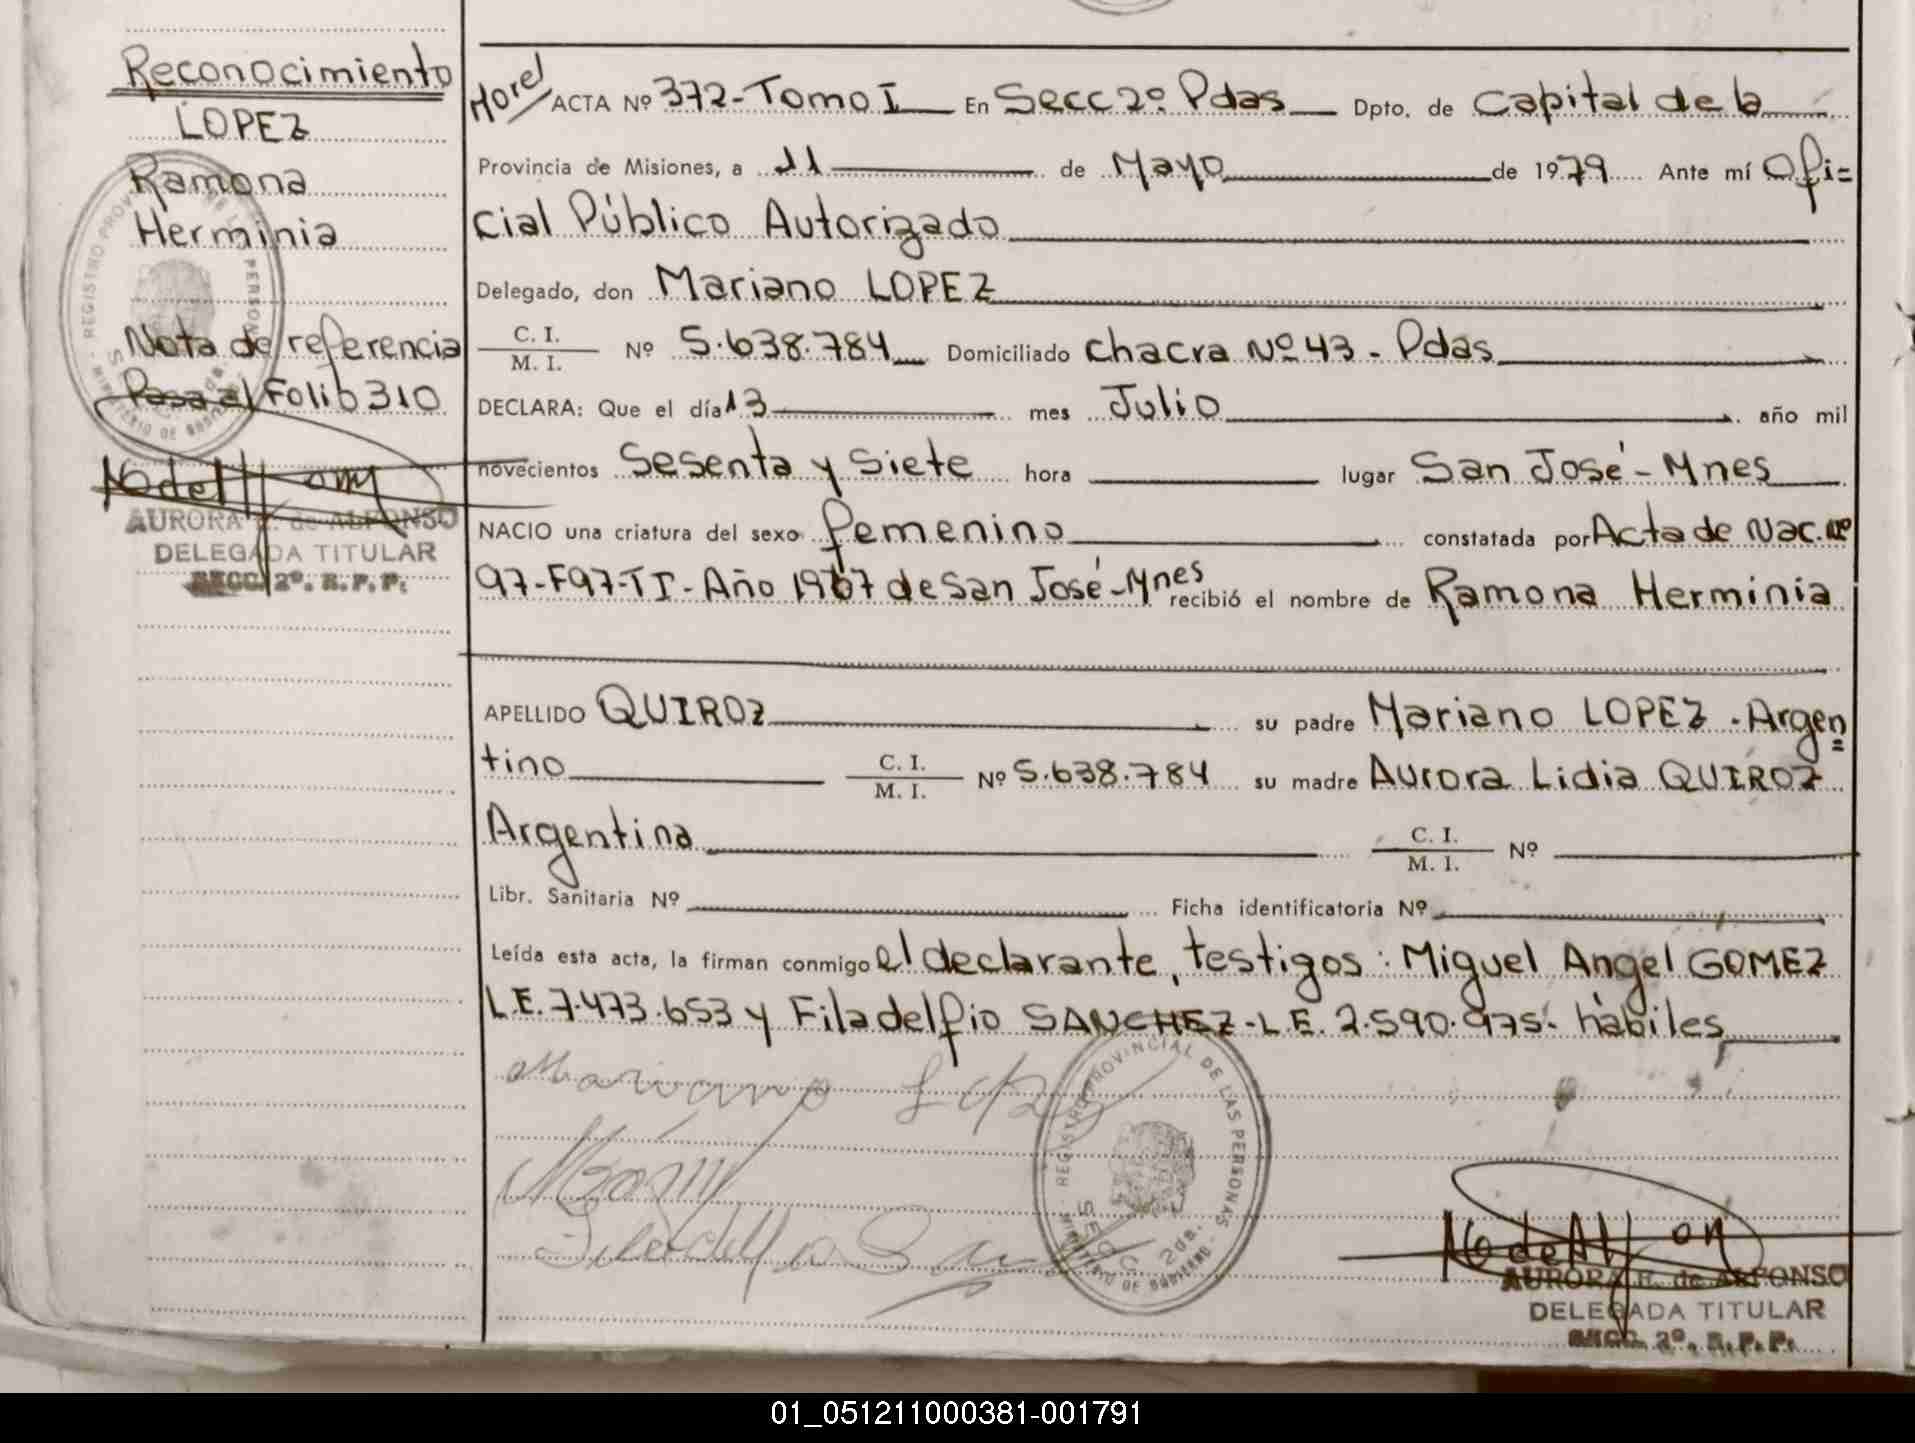 Reconocimiento
LOPEZ
Ramona
Herminia
Nota de referencia
Pasa al Folio 310
AURORA H. de ALFONSO
DELEGADA TITULAR
SECC. 2º. R. P. P.
ACTA Nº 372-Tomo I En Secc 2º Pdas Dpto. de Capital de la
Provincia de Misiones, a 11 de Mayo de 1979 Ante mí Ofi=
cial Público Autorizado
Delegado, don Mariano LOPEZ
C. I.
M. I. Nº 5.638.784 Domiciliado chacra Nº 43 - Pdas
DECLARA: Que el día 13 mes Julio año mil
novecientos Sesenta y Siete hora lugar San José - Mnes
NACIO una criatura del sexo femenino constatada por Acta de Nac. Nº
97-F97-TI-Año 1967 de San José-Mnes recibió el nombre de Ramona Herminia
APELLIDO QUIROZ su padre Mariano LOPEZ - Argen=
tino C. I. M. I. Nº 5.638.784 su madre Aurora Lidia QUIROZ
Argentina C. I. M. I. Nº
Libr. Sanitaria Nº Ficha identificatoria Nº
Leída esta acta, la firman conmigo el declarante, testigos: Miguel Angel GOMEZ
L.E. 7.473.653 y Filadelfio SANCHEZ-L.E. 2.590.975- hábiles
Mariano Lopez
REGISTRO PROVINCIAL DE LAS PERSONAS
SECC. 2da.
MINISTERIO DE GOBIERNO
AURORA H. de ALFONSO
DELEGADA TITULAR
SECC. 2º. R. P. P.
01_051211000381-001791